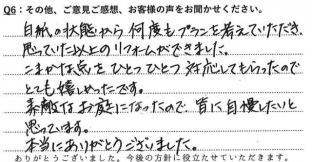 Q6：その他、ご意見ご感想、お客様の声をお聞かせください。
白紙の状態から何度もプランを考えていただき、
思っていた以上のリフォームができました。
こまかな点をひとつひとつ対応してもらったので
とても嬉しかったです。
素敵なお庭になったので、皆に自慢したいと
思っています。
本当にありがとうございました。
ありがとうございました。今後の方針に役立たせていただきます。